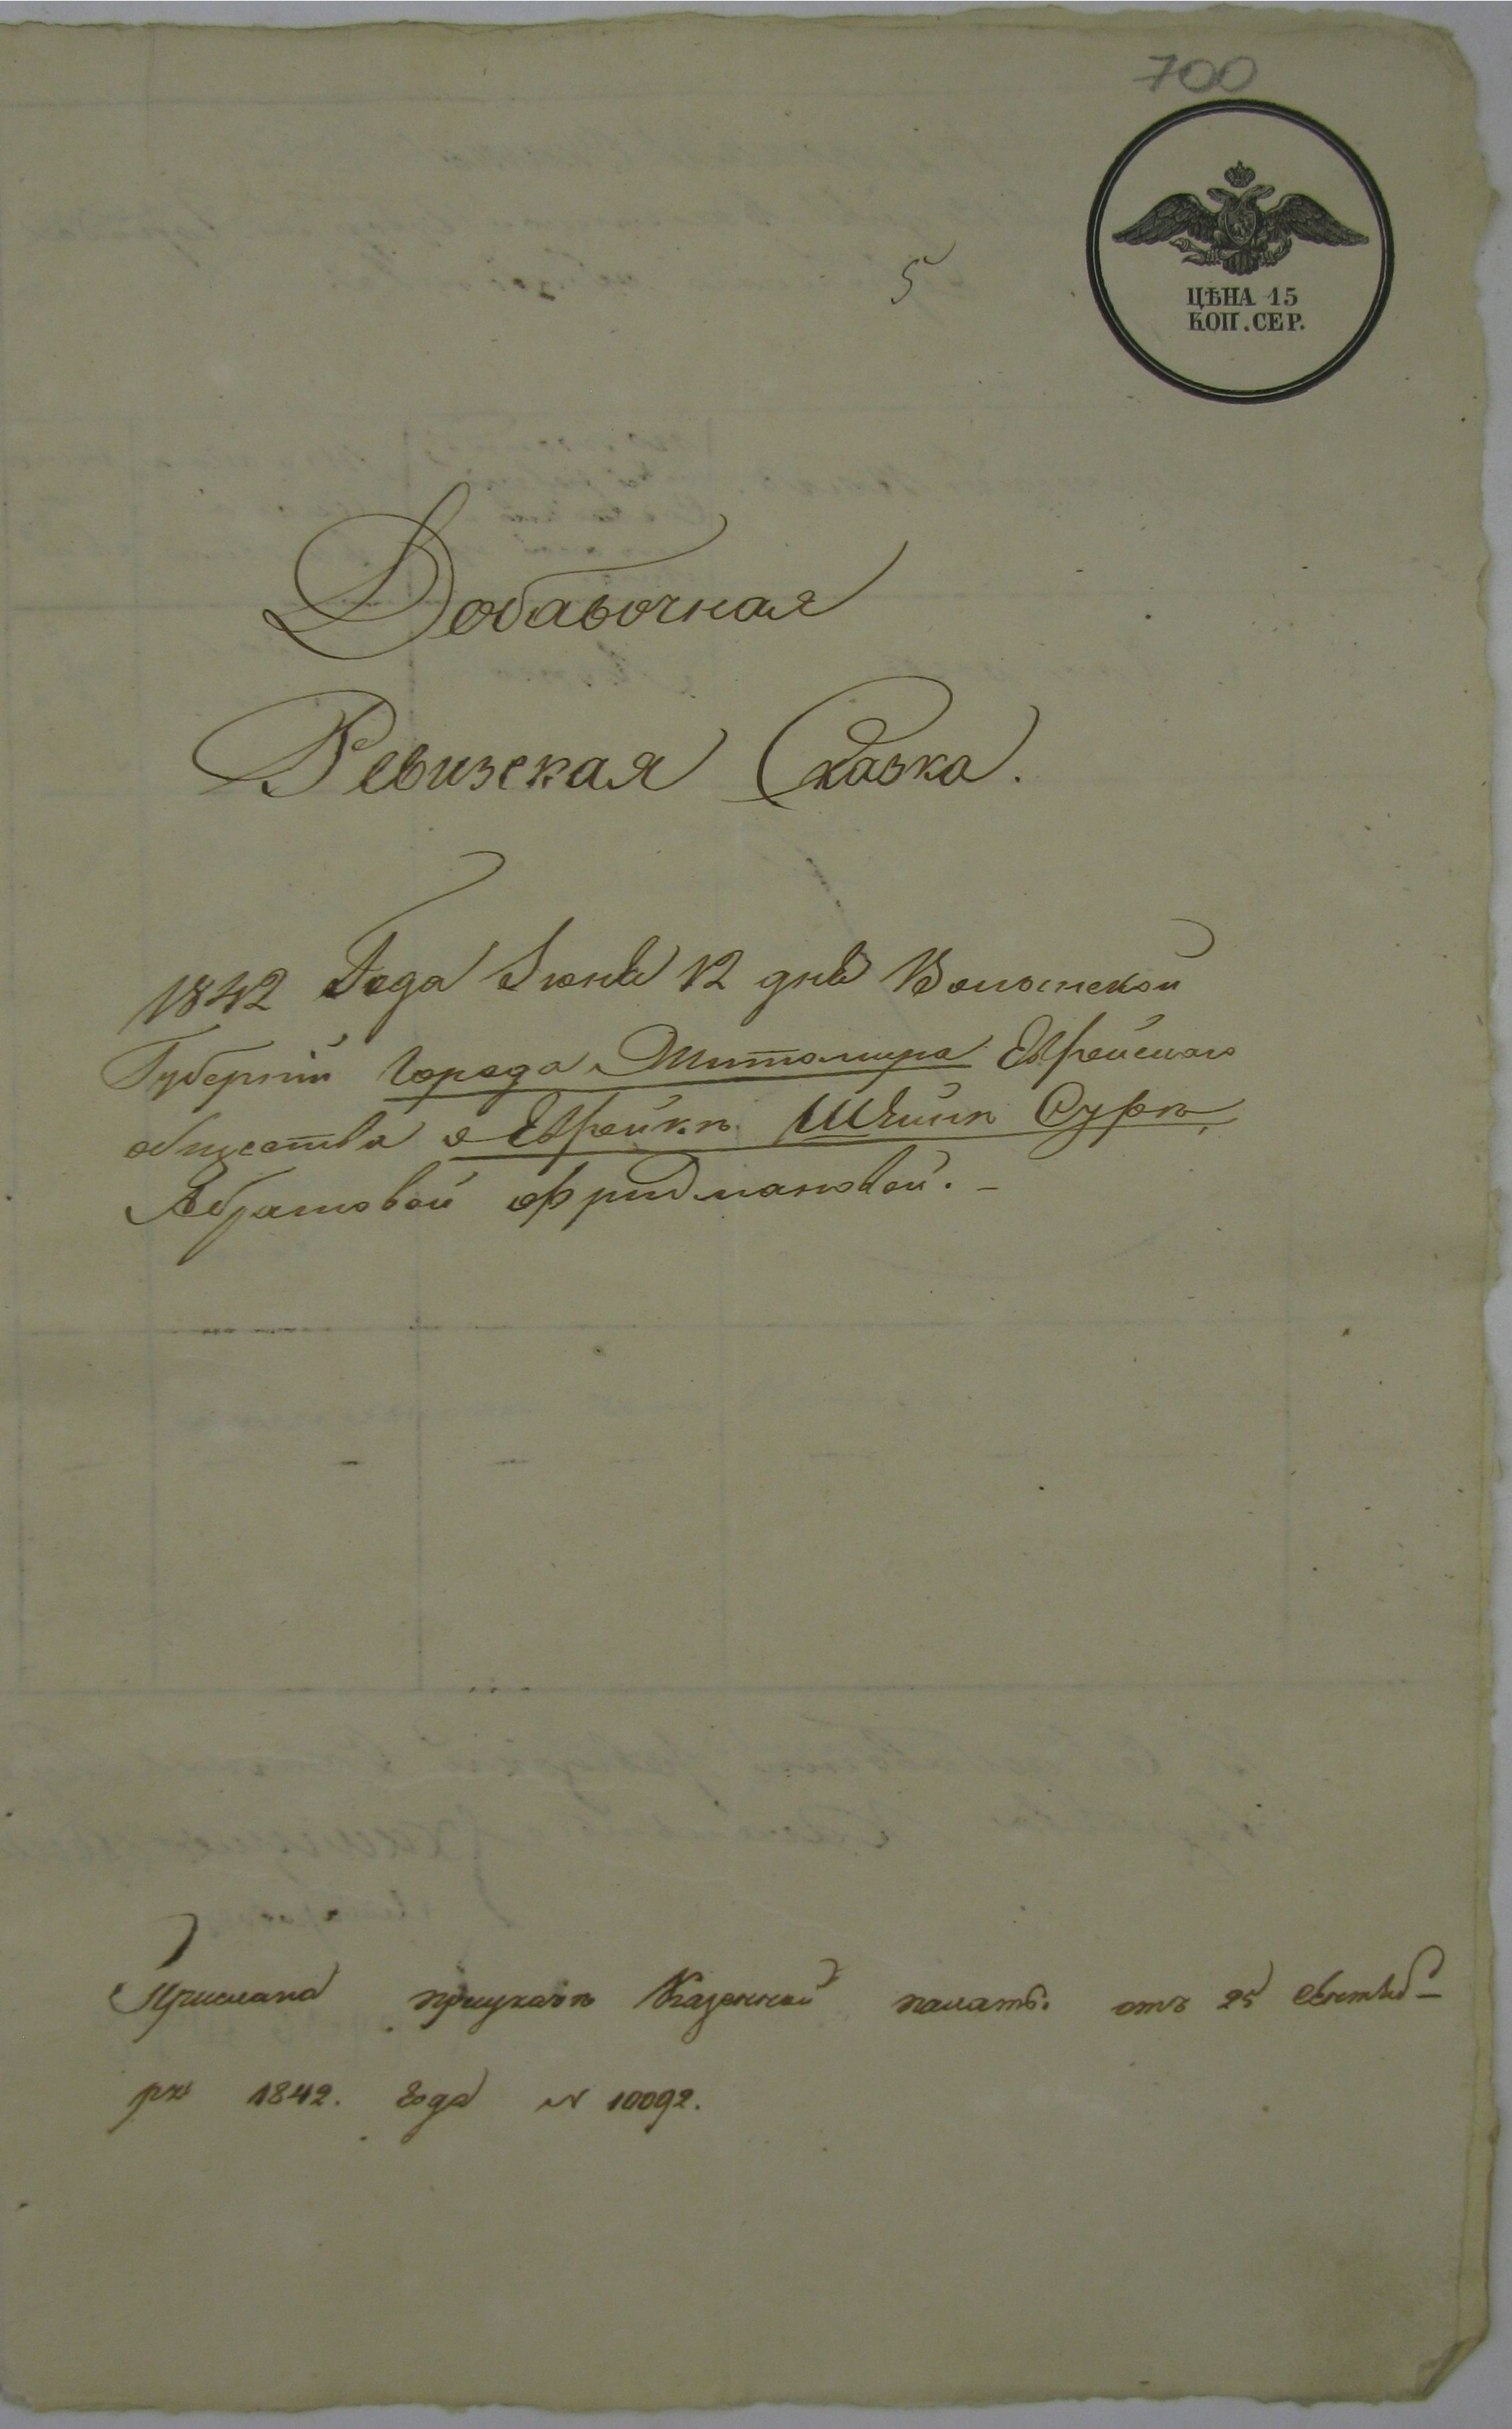 700
ЦѢНА 15
КОП. СЕР.
5
Добавочная
Ревизская Сказка.
1842 Года Іюня 12 дня Волынской
Губерніи Города Житомира Еврейскаго
общества о Еврейкѣ Шейнѣ Суркѣ
Абрамовой Фридмановой. –
Прислана приуказѣ Казенной палаты отъ 25 Сентяб–
ря 1842. года № 10092.